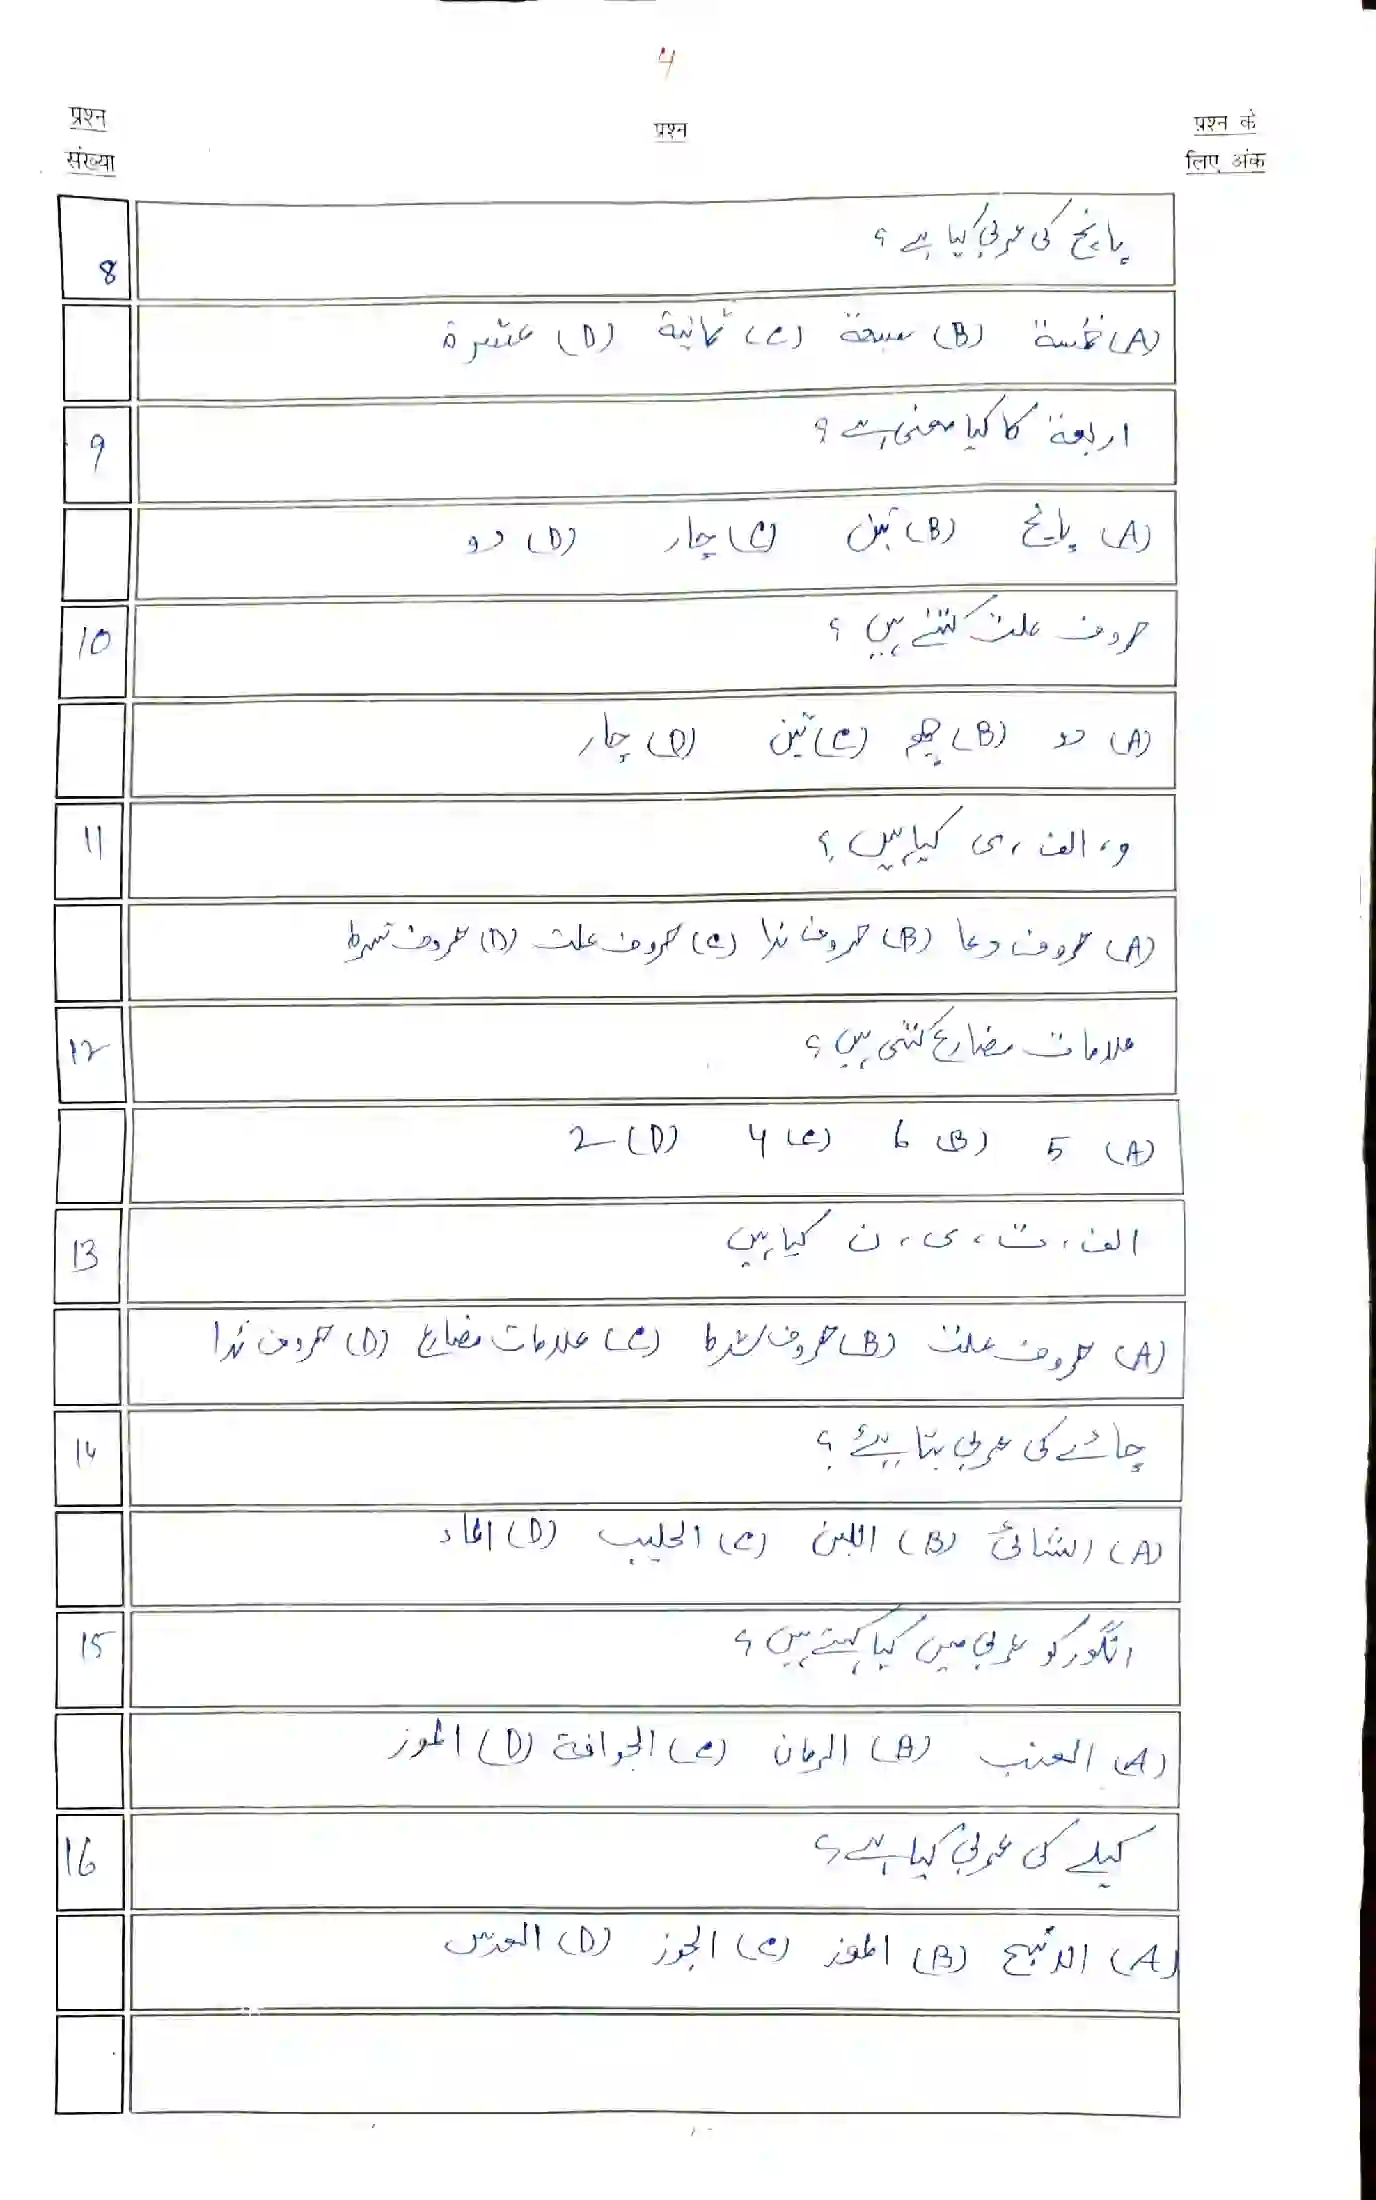 4
प्रश्न संख्या
प्रश्न
प्रश्न के लिए अंक
8 پانچ کی عربی کیا ہے؟
(A) خمسة (B) سبعة (C) ثمانية (D) عشرة
9 اربعة کا کیا معنی ہے؟
(A) پانچ (B) تین (C) چار (D) دو
10 حروف علت کتنے ہیں؟
(A) دو (B) چھ (C) تین (D) چار
11 و، الف، ی کیا ہیں؟
(A) حروف دعا (B) حروف ندا (C) حروف علت (D) حروف شرط
12 علامات مضارع کتنی ہیں؟
(A) 5 (B) 6 (C) 4 (D) 2
13 الف، ت، ی، ن کیا ہیں
(A) حروف علت (B) حروف شرط (C) علامات مضارع (D) حروف ندا
14 چائے کی عربی بتایئے؟
(A) الشائ (B) اللبن (C) الحليب (D) الماء
15 انگور کو عربی میں کیا کہتے ہیں؟
(A) العنب (B) الرمان (C) الجوافة (D) الموز
16 کیلے کی عربی کیا ہے؟
(A) (B) الموز (C) الجوز (D) العدس